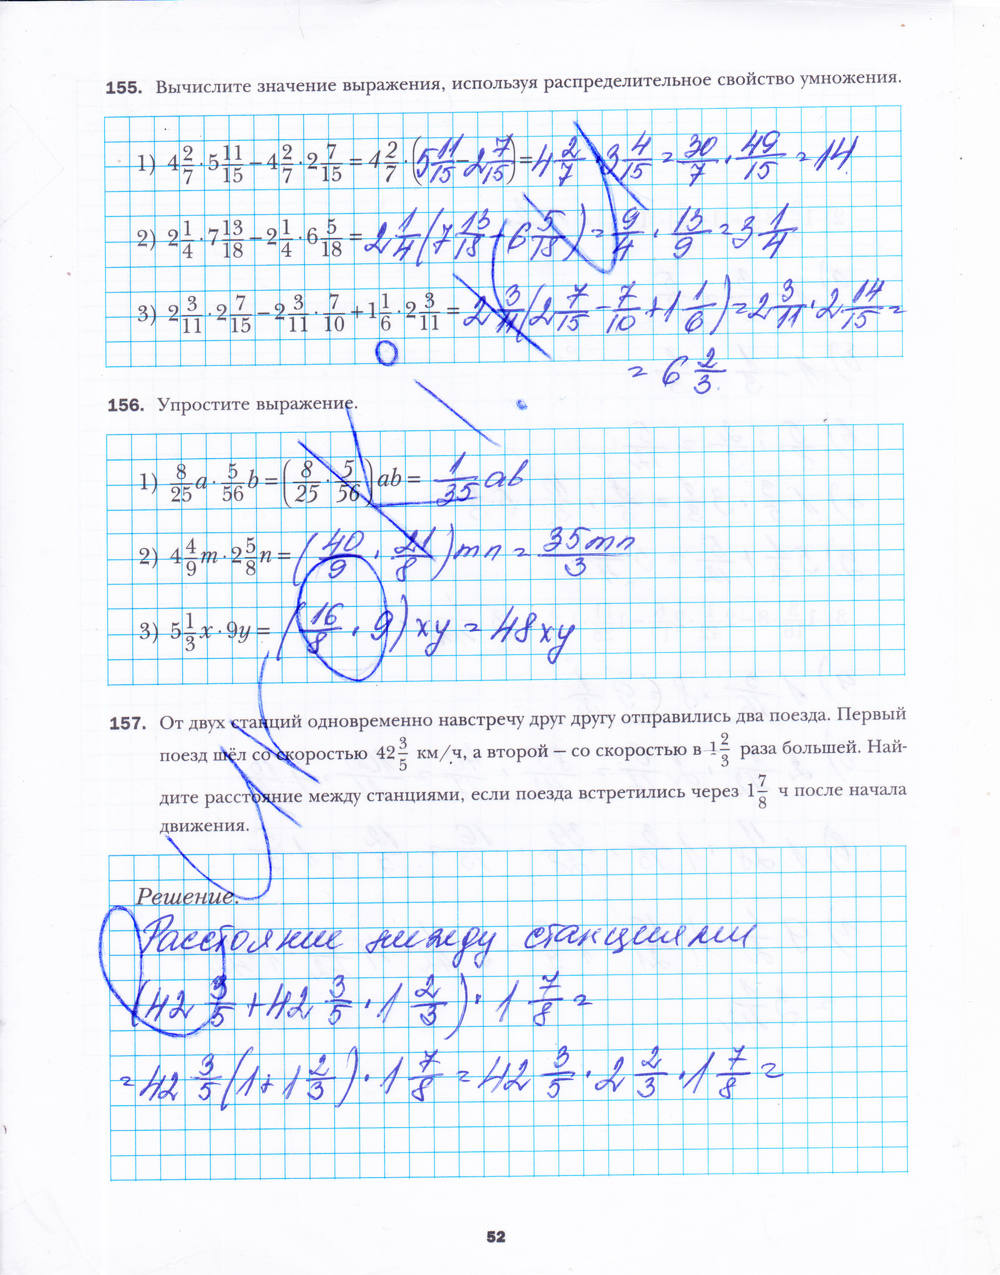 155. Вычислите значение выражения, используя распределительное свойство умножения.
1) 4 2/7 · 5 11/15 − 4 2/7 · 2 7/15 = 4 2/7 · (5 11/15 − 2 7/15) = 4 2/7 · 3 4/15 = 30/7 · 49/15 = 14
2) 2 1/4 · 7 13/18 − 2 1/4 · 6 5/18 = 2 1/4 (7 13/18 − 6 5/18) = 9/4 · 13/9 = 3 1/4
3) 2 3/11 · 2 7/15 − 2 3/11 · 7/10 + 1 1/6 · 2 3/11 = 2 3/11 (2 7/15 − 7/10 + 1 1/6) = 2 3/11 · 2 14/15 =
= 6 2/3
156. Упростите выражение.
1) 8/25 a · 5/56 b = (8/25 · 5/56) ab = 1/35 ab
2) 4 4/9 m · 2 5/8 n = (40/9 · 21/8) mn = 35mn/3
3) 5 1/3 x · 9y = (16/8 · 9) xy = 48xy
157. От двух станций одновременно навстречу друг другу отправились два поезда. Первый
поезд шёл со скоростью 42 3/5 км/ч, а второй — со скоростью в 1 2/3 раза большей. Най-
дите расстояние между станциями, если поезда встретились через 1 7/8 ч после начала
движения.
Решение.
Расстояние между станциями
(42 3/5 + 42 3/5 · 1 2/3) · 1 7/8 =
= 42 3/5 (1 + 1 2/3) · 1 7/8 = 42 3/5 · 2 2/3 · 1 7/8 =
52